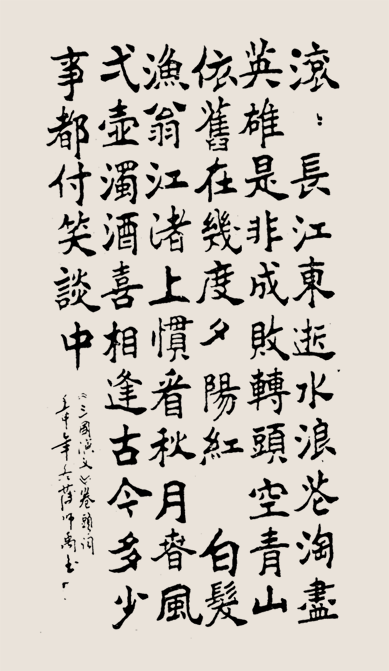 滾：長江東逝水浪花淘盡
英雄是非成敗轉頭空青山
依舊在幾度夕陽紅 白髮
漁翁江渚上慣看秋月春風
弌壺濁酒喜相逢古今多少
事都付笑談中
《三國演义》卷頭词
壬申年